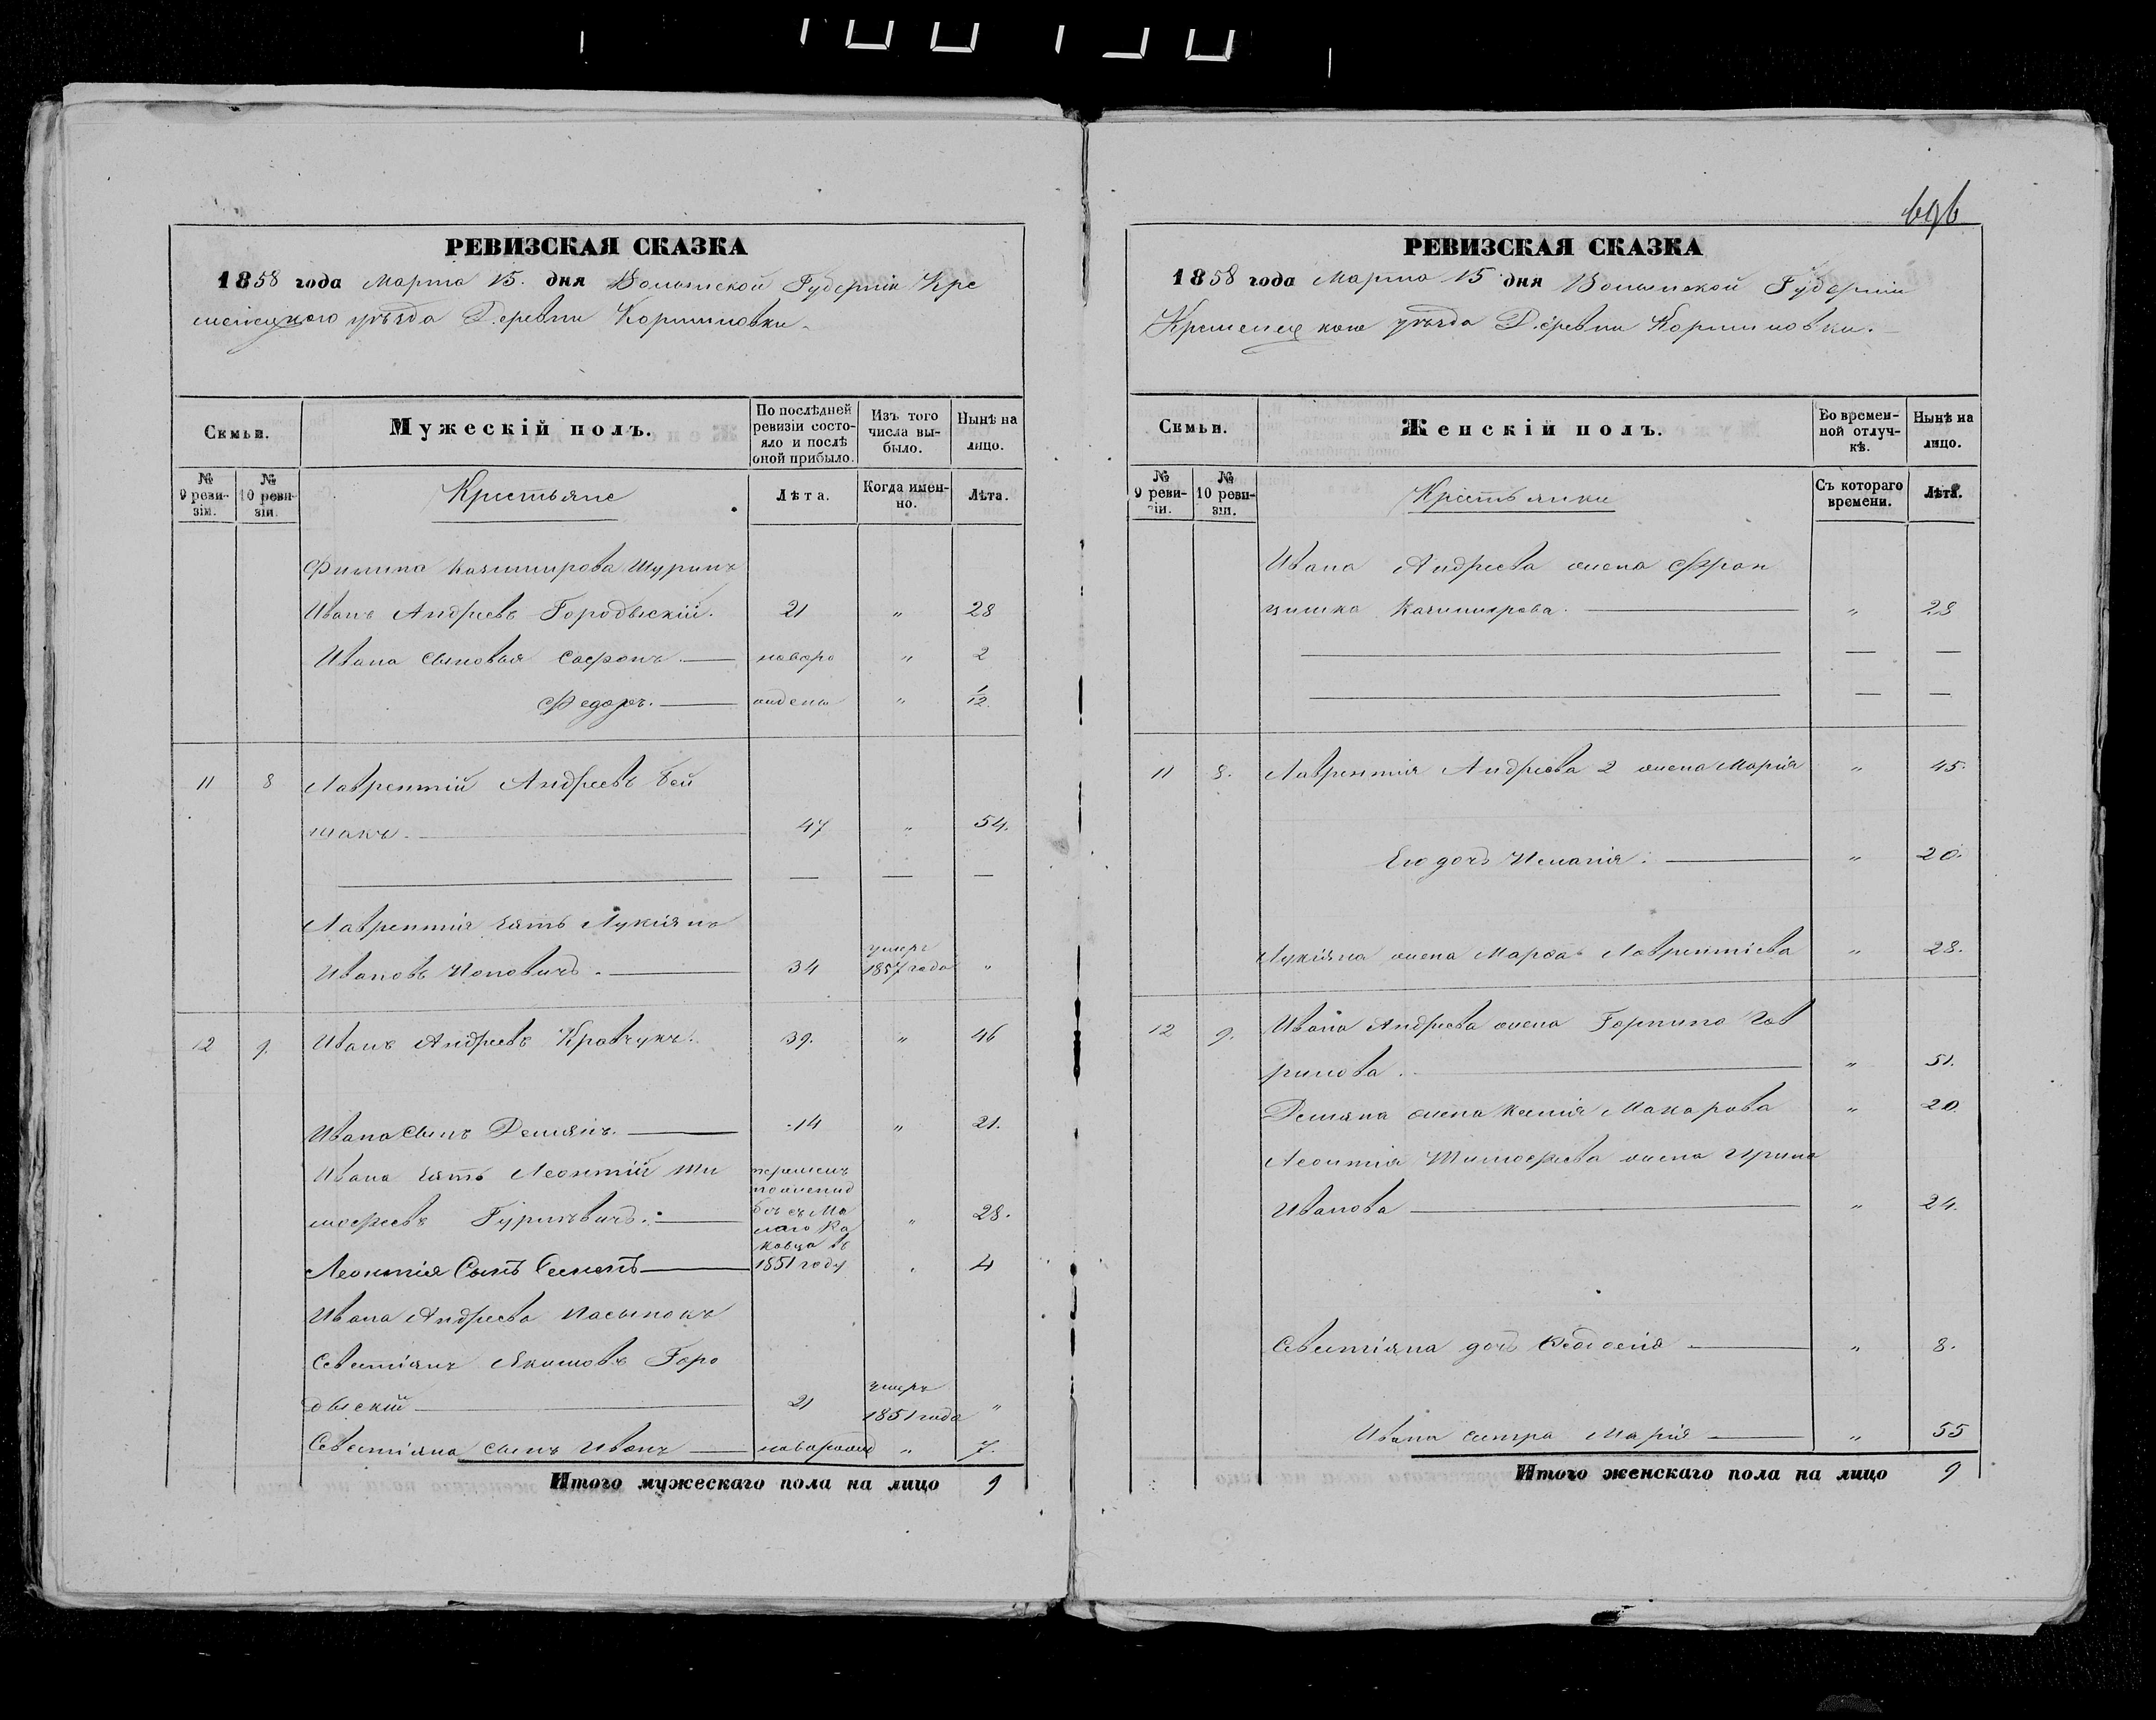 РЕВИЗСКАЯ СКАЗКА
1858 года Марта 15. дня Волынской Губерніи Кре
менецкого уѣзда Деревни Коршиловки.
Семьи.
Мужескій полъ.
По послѣдней ревизіи состояло и послѣ оной прибыло.
Изъ того числа выбыло.
Нынѣ на лицо.
№ 9 ревизіи.
№ 10 ревизіи.
Крестьяне
Лѣта.
Когда именно.
Лѣта.
Филипа Казимирова Шуринъ
Иванъ Андреевъ Городыскій. 21 " 28
Ивана сыновья Сафронъ. — новоро " 2
Федоръ. — ждены " 1/12
11 8 Лаврентій Андреевъ
шакъ. — 47 " 54.
— — —
Лаврентія зять Лукіянъ
Ивановъ — 34 умеръ 1857 года "
12 9. Иванъ Андреевъ Кравчукъ. 39. " 46
Ивана сынъ Демянъ. — 14 " 21.
Ивана зять Леонтій Ти
мофеевъ — " 28.
1851 году
Леонтія Сынъ Семенъ — " 4
Ивана Андреева Пасынокъ
Севастіянъ Якимовъ Горо
дыскій — 21 умеръ 1851 года "
Севастіяна сынъ Иванъ —новорожд " 7.
Итого мужескаго пола на лицо 9
696
РЕВИЗСКАЯ СКАЗКА
1858 года Марта 15 дня Волынской Губерніи
Кременецкого уѣзда Деревни Коршиловки.
Семьи.
Женскій полъ.
Во временной отлучкѣ.
Нынѣ на лицо.
№ 9 ревизіи.
№ 10 ревизіи.
Крестьянки
Съ котораго времени.
Лѣта.
Ивана Андреева жена Фран
цишка Казимирова. — " 28
— — —
— — —
11 8. Лаврентія Андреева 2 жена Марія " 45.
Его дочь — " 20.
Лукіяна жена Марфа Лаврентіева " 28.
12 9. Ивана Андреева жена Горпина Гав
рилова. — " 51.
Демяна жена Ксенія Макарова " 20
Леонтія Тимофеева жена Ирина
Иванова — " 24.
Севастіяна дочь Феодосія — " 8.
Ивана сестра Марія — " 55
Итого женскаго пола на лицо 9